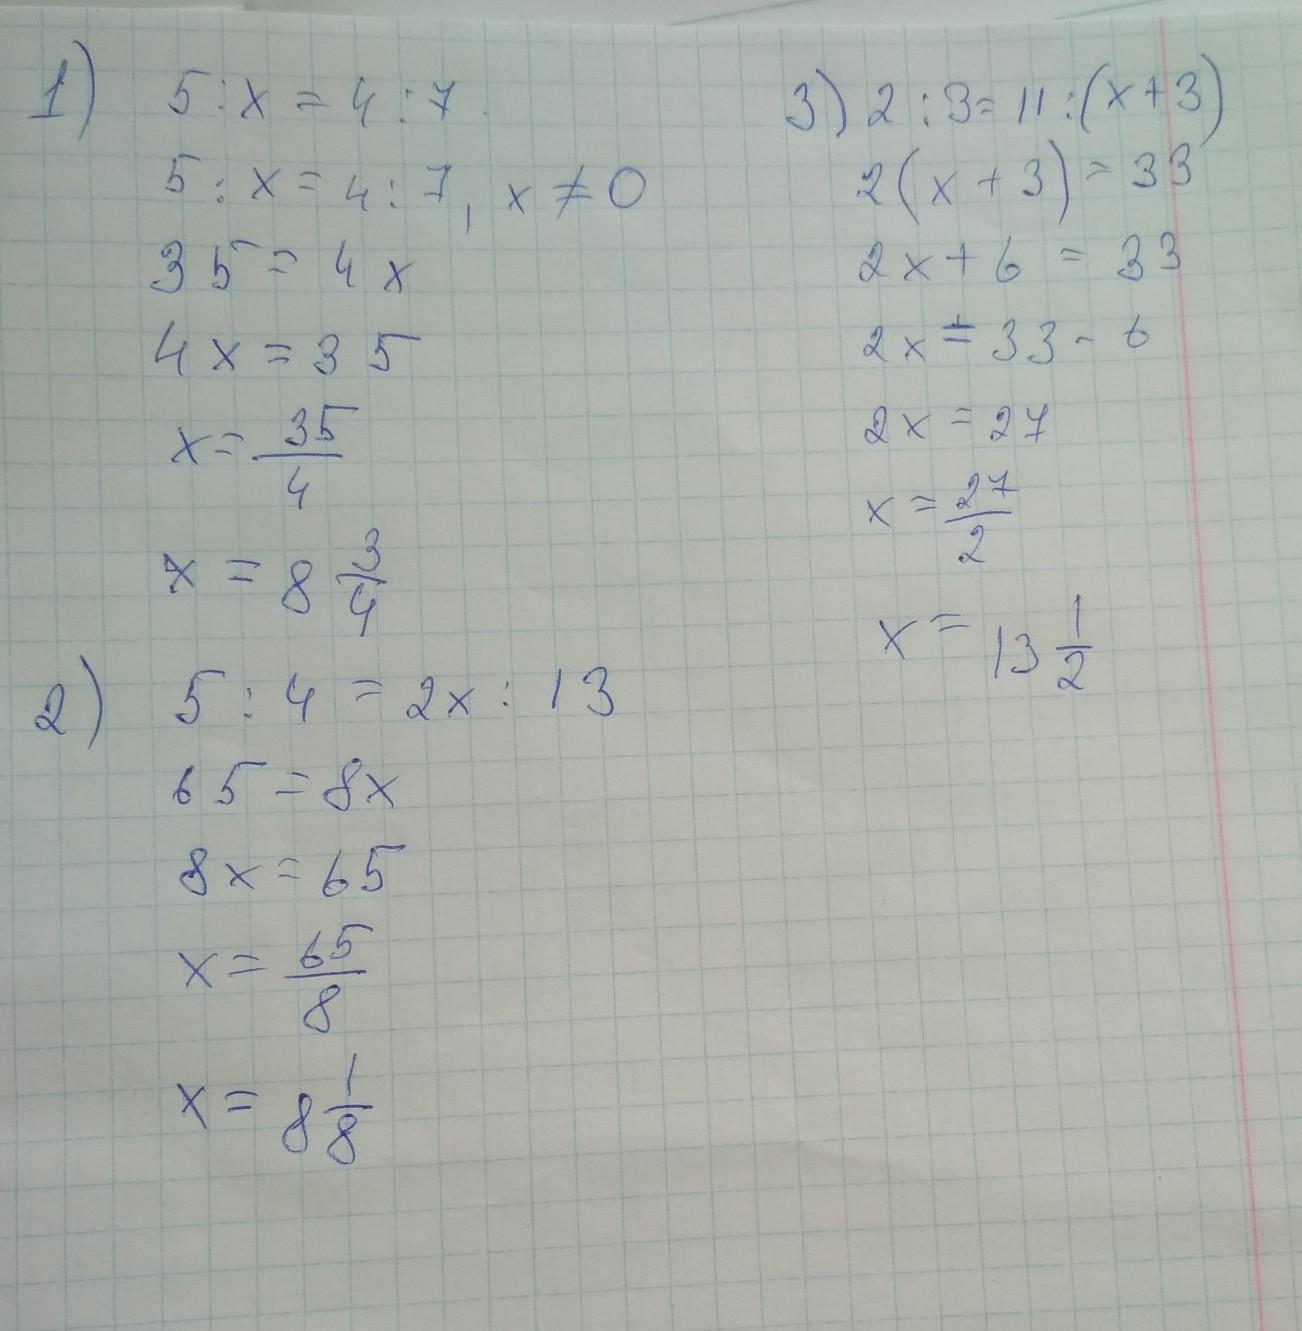 1) 5 : x = 4 : 7
5 : x = 4 : 7, x ≠ 0
35 = 4x
4x = 35
x = 35/4
x = 8 3/4
2) 5 : 4 = 2x : 13
65 = 8x
8x = 65
x = 65/8
x = 8 1/8
3) 2 : 3 = 11 : (x + 3)
2(x + 3) = 33
2x + 6 = 33
2x = 33 - 6
2x = 27
x = 27/2
x = 13 1/2